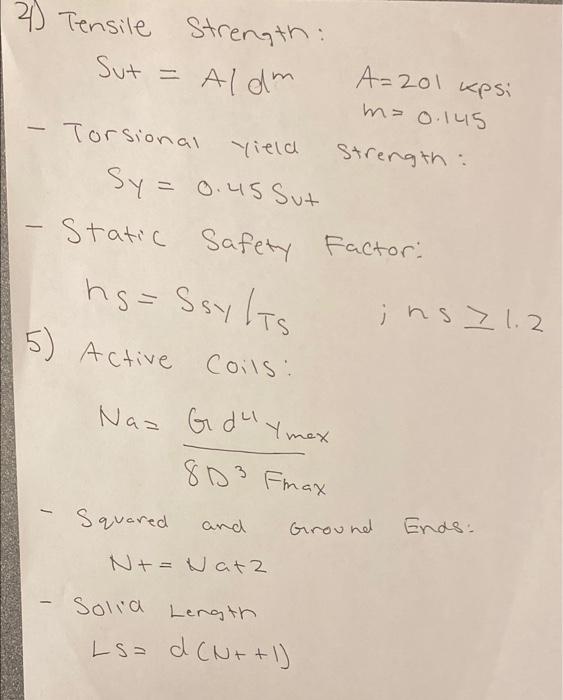 4) Tensile Strength:
Sut = A/dᵐ A=201 kpsi
m= 0.145
- Torsional yield Strength:
Sy = 0.45 Sut
- Static Safety Factor:
ns = Ssy/τs ; ns ≥ 1.2
5) Active Coils:
Na= G d⁴ ymax
8D³ Fmax
- Squared and Ground Ends:
Nt = Na+2
- Solid Length
Ls= d(Nt+1)